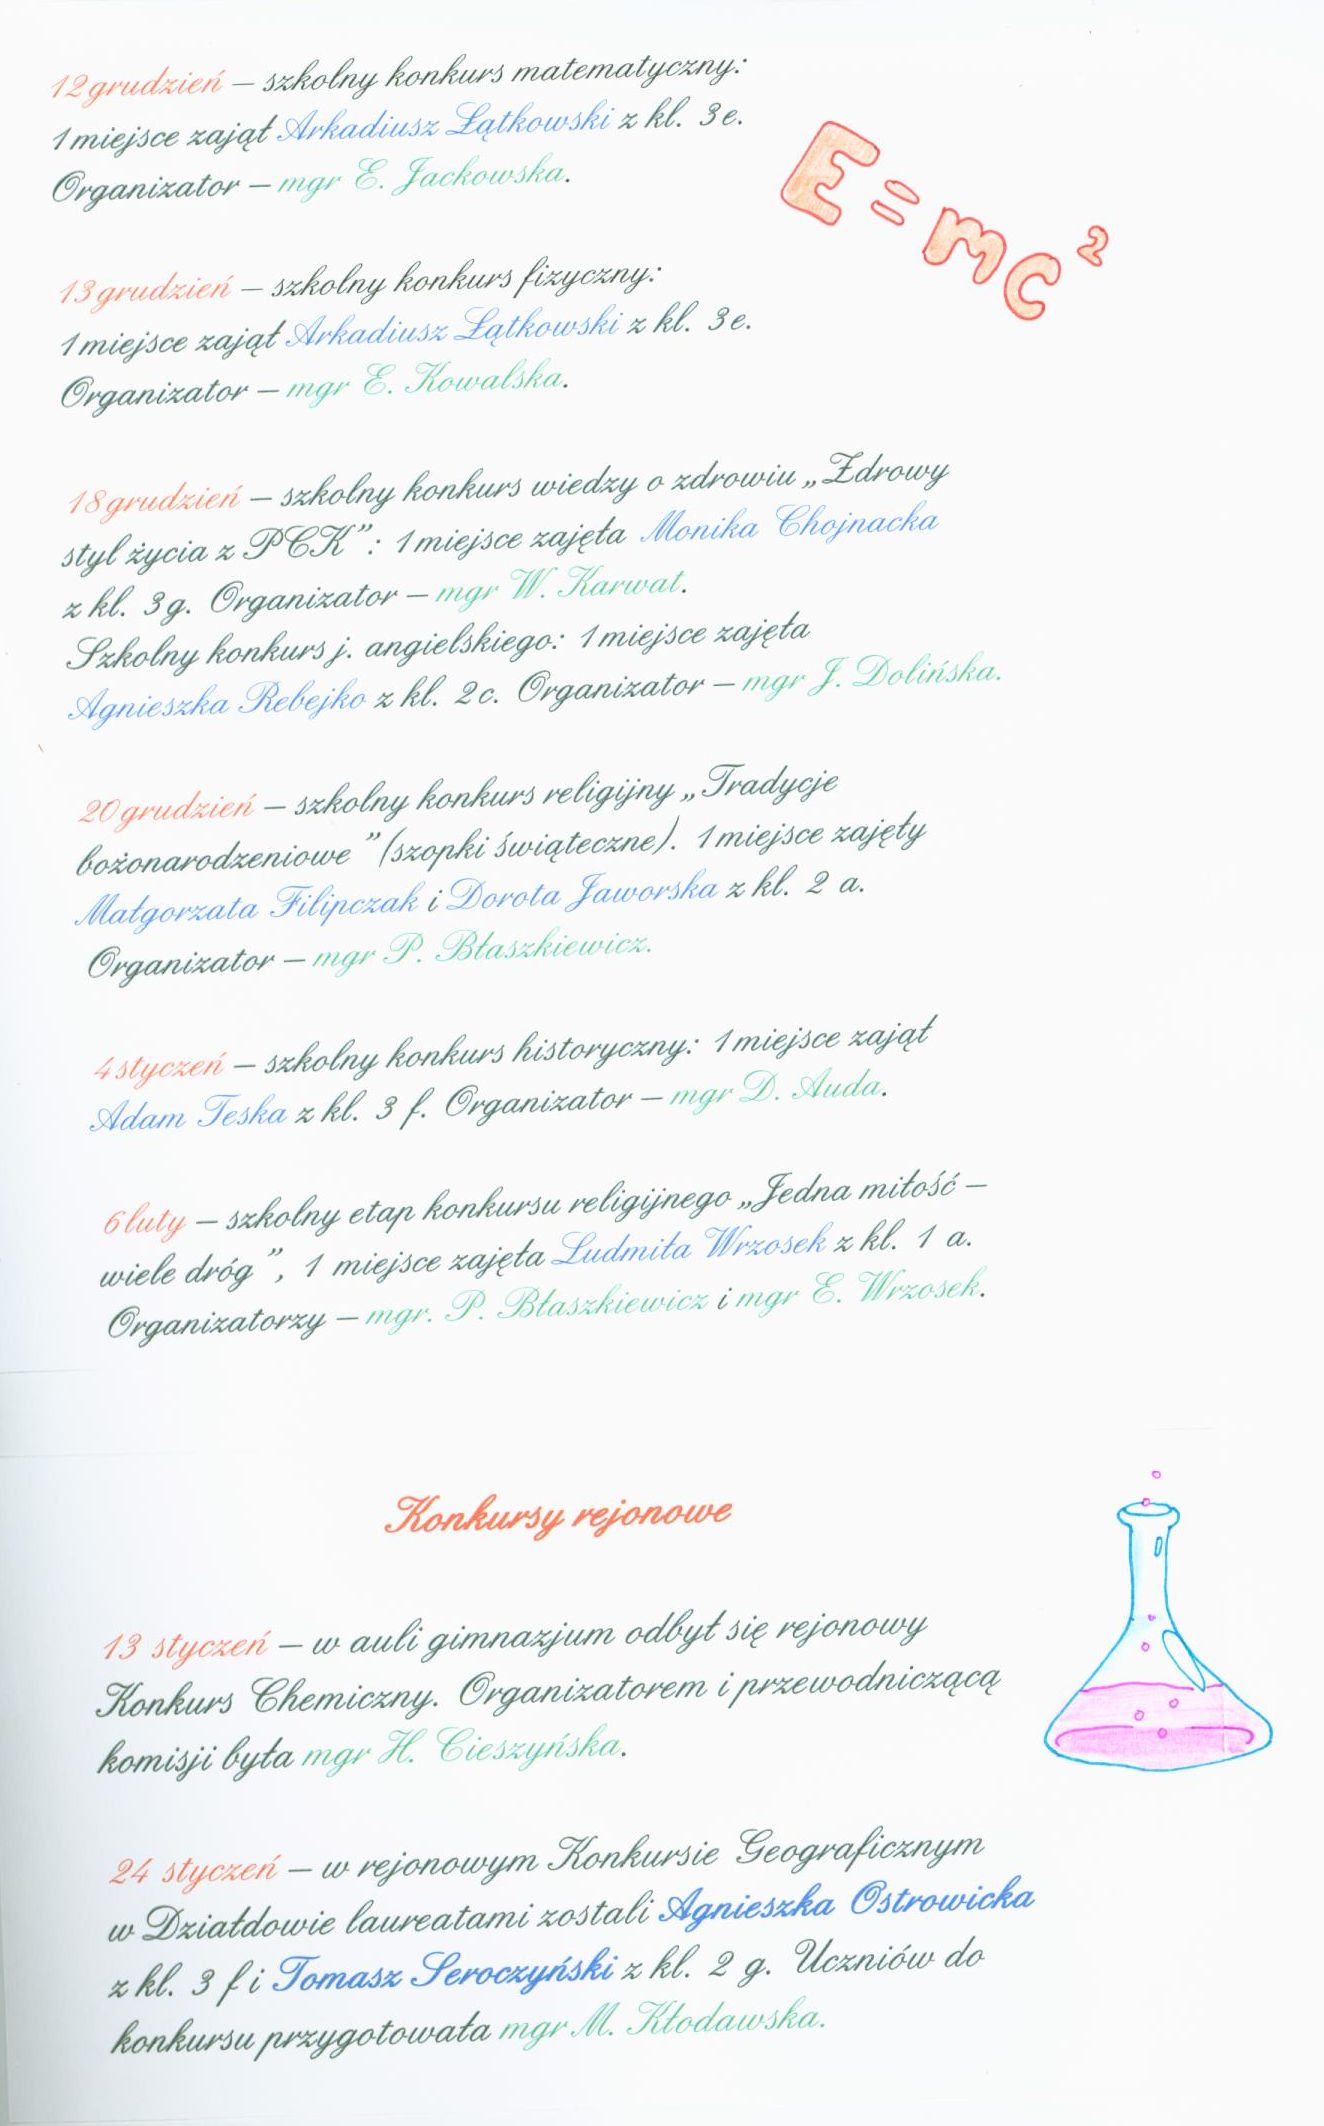 12 grudzień – szkolny konkurs matematyczny:
1 miejsce zajął Arkadiusz Łątkowski z kl. 3e.
Organizator – mgr E. Jackowska.
E=mc²
13 grudzień – szkolny konkurs fizyczny:
1 miejsce zajął Arkadiusz Łątkowski z kl. 3e.
Organizator – mgr E. Kowalska.
18 grudzień – szkolny konkurs wiedzy o zdrowiu „Zdrowy
styl życia z PCK”: 1 miejsce zajęła Monika Chojnacka
z kl. 3g. Organizator – mgr W. Karwat.
Szkolny konkurs j. angielskiego: 1 miejsce zajęła
Agnieszka Rebejko z kl. 2c. Organizator – mgr J. Dolińska.
20 grudzień – szkolny konkurs religijny „Tradycje
bożonarodzeniowe ” (szopki świąteczne). 1 miejsce zajęły
Małgorzata Filipczak i Dorota Jaworska z kl. 2 a.
Organizator – mgr P. Błaszkiewicz.
4 styczeń – szkolny konkurs historyczny: 1 miejsce zajął
Adam Teska z kl. 3 f. Organizator – mgr D. Auda.
6 luty – szkolny etap konkursu religijnego „Jedna miłość –
wiele dróg ”, 1 miejsce zajęła Ludmiła Wrzosek z kl. 1 a.
Organizatorzy – mgr. P. Błaszkiewicz i mgr E. Wrzosek.
Konkursy rejonowe
13 styczeń – w auli gimnazjum odbył się rejonowy
Konkurs Chemiczny. Organizatorem i przewodniczącą
komisji była mgr H. Cieszyńska.
24 styczeń – w rejonowym Konkursie Geograficznym
w Działdowie laureatami zostali Agnieszka Ostrowicka
z kl. 3 f i Tomasz Seroczyński z kl. 2 g. Uczniów do
konkursu przygotowała mgr M. Kłodawska.